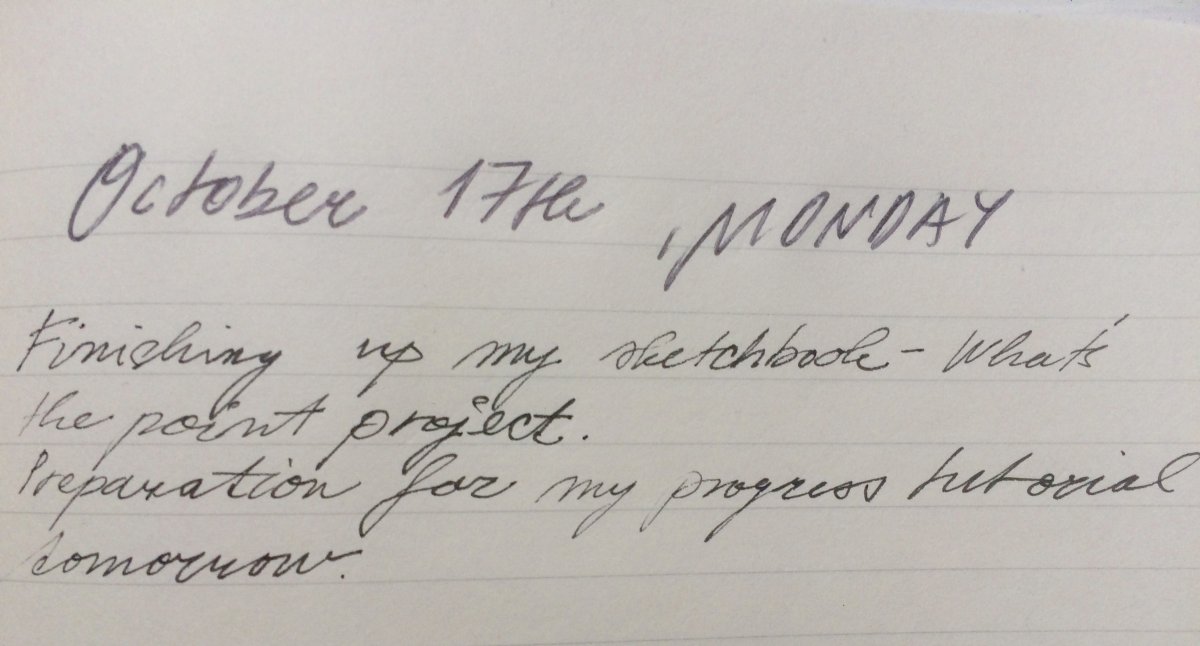 October 17th , MONDAY
Finishing up my sketchbook - What's
the point project.
Preparation for my progress tutorial
tomorrow.